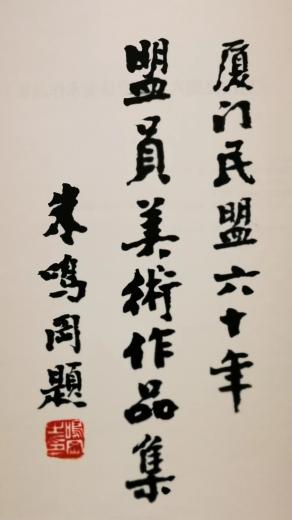 厦门民盟六十年
盟員美術作品集
朱鳴岡題